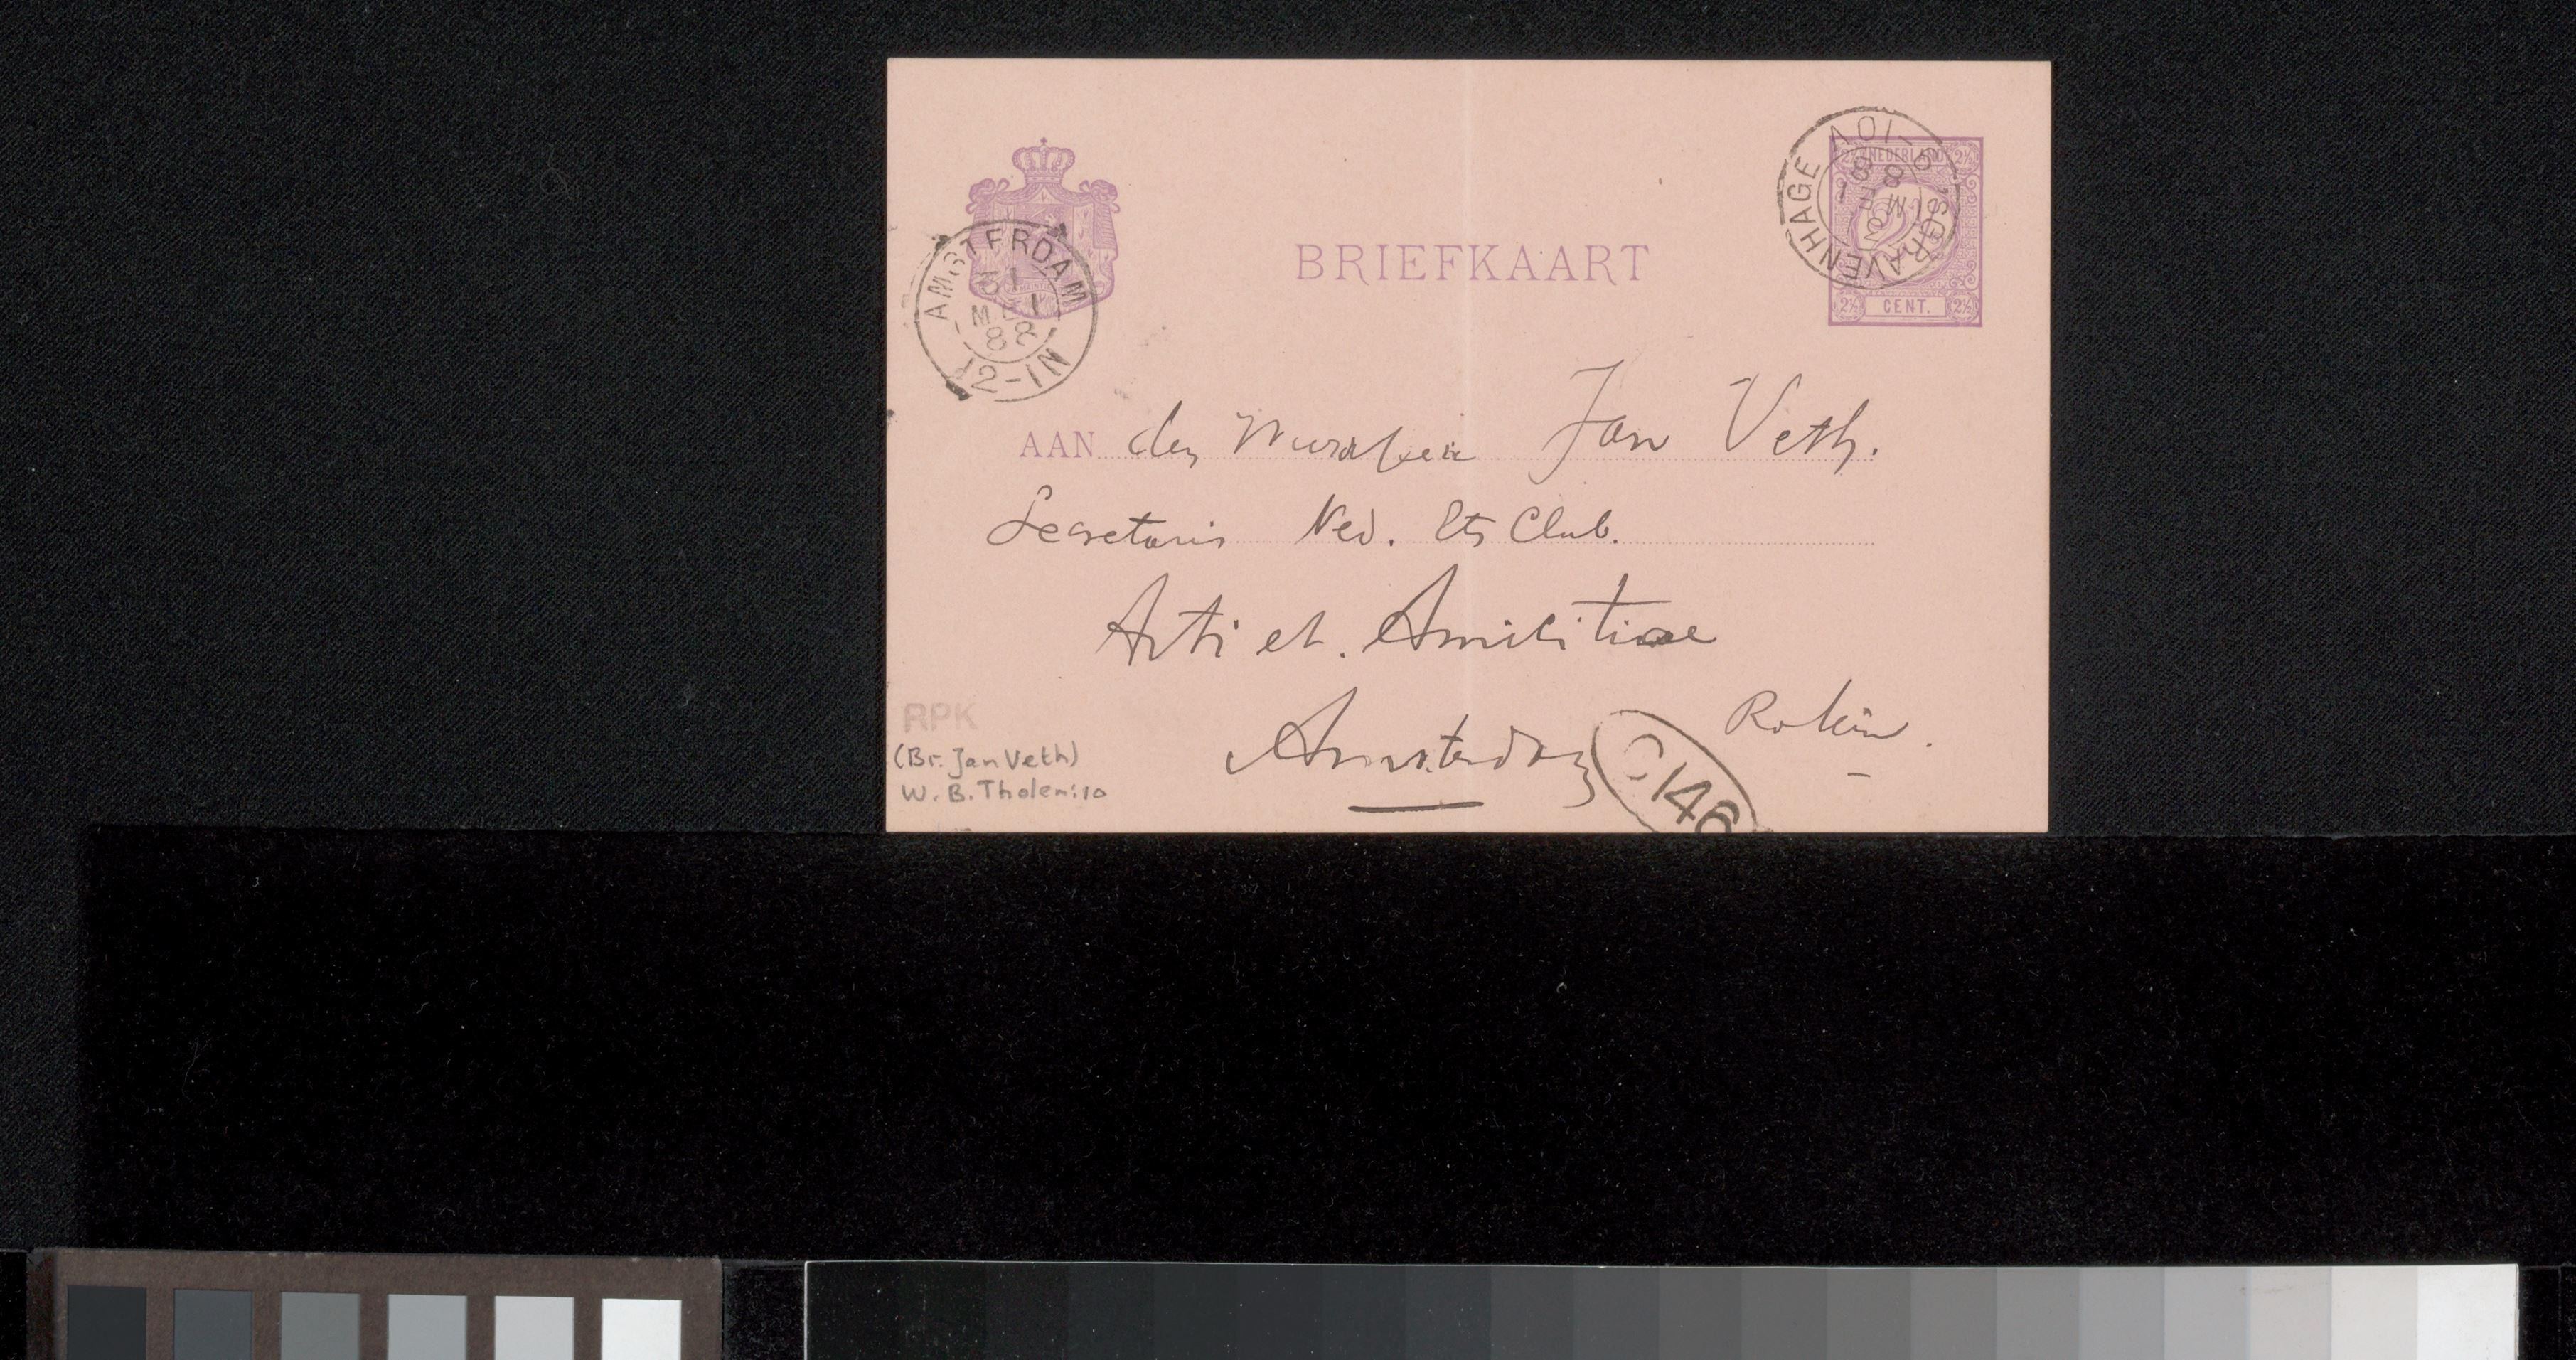 BRIEFKAART
NEDERLAND
2½ CENT. 2½
'S GRAVENHAGE
AMSTERDAM
31
MEI
88
12-1N
AAN den Jan Veth.
Secretaris Ned. Ets Club.
Arti et. Amicitiae
Rokin.
Amsterdam
C146
RPK
(Br. Jan Veth)
W. B. Tholen:10